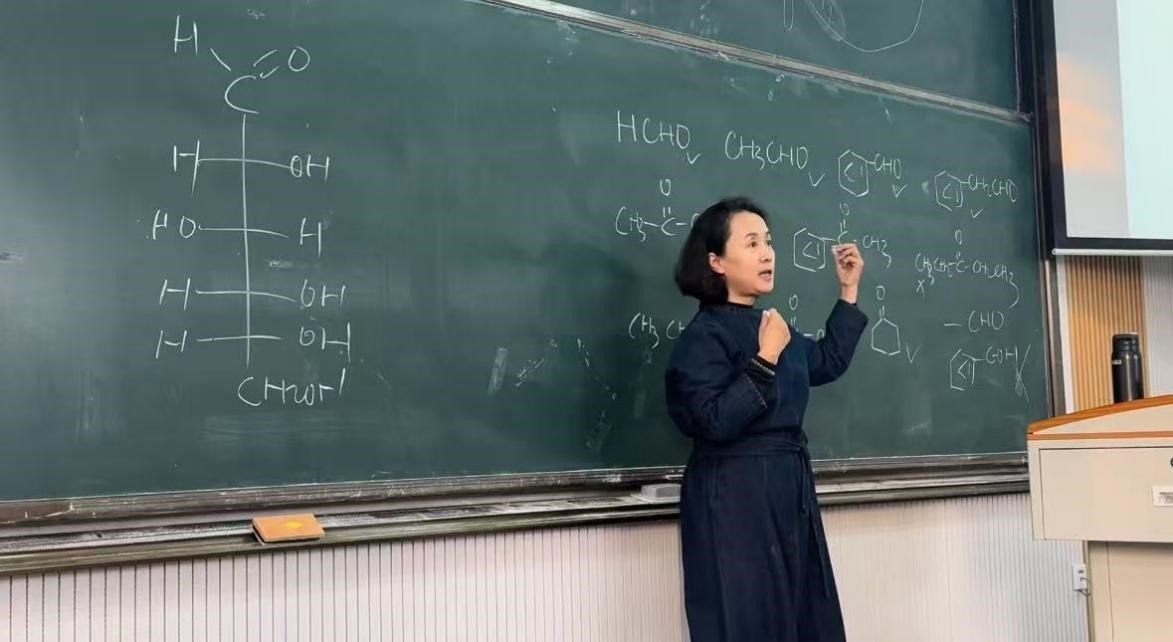 H O
C
H OH
HO H
H OH
H OH
CH2OH
HCHO ✓ CH3CHO ✓ CHO ✓ CH2CHO ✓
O O O
CH3-C- C-CH3 CH3CH2-C-CH2CH3 x
O O -CHO
(CH3 C ✓ COH